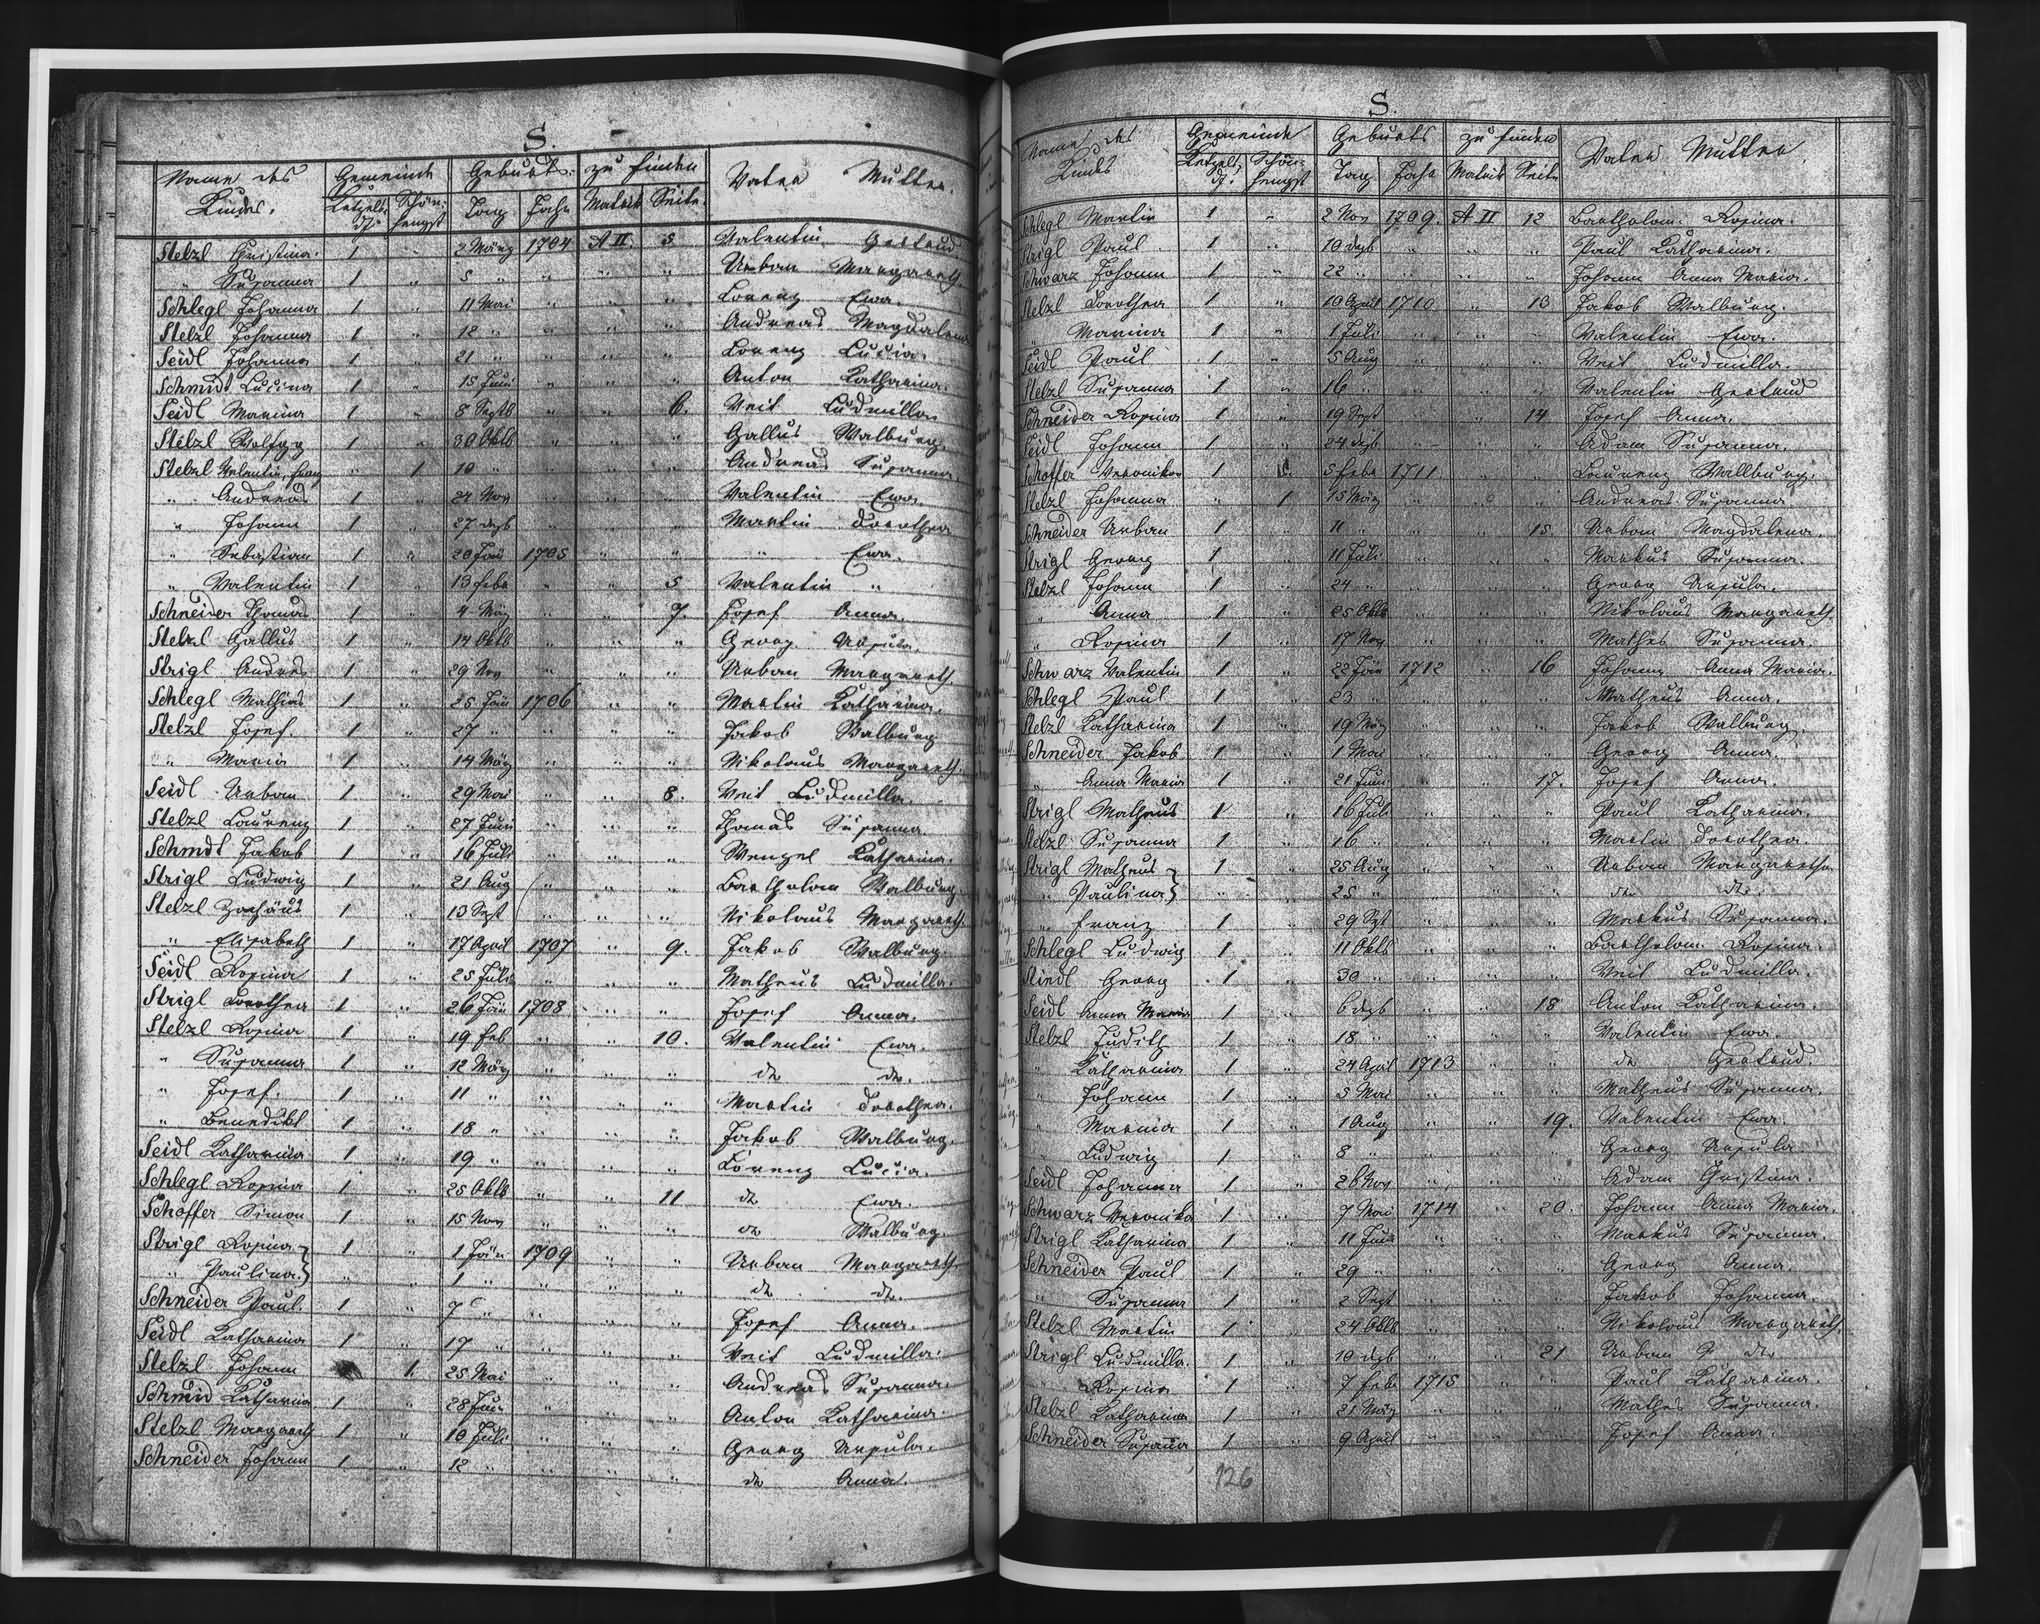 S.
Name des Kindes. Gemeinde Geburts zu finden Vater Mutter.
Ketzelsdf. Schönhengst Tag Jahr Matrik Seite.
Stelzl Christina. 1 " 2 März 1704 A II. 5 Valentin Gertrud
" Susanna 1 " 5 " " " " Urban Margareth
Schlegl Johanna 1 " 11 Mai " " " Lorenz Ewa.
Stelzl Johanna 1 " 12 " " " " Andreas Magdalena
Seidl Johanna 1 " 21 " " " " Lorenz Lucia.
Schmidt Lucina 1 " 15 Juni " " " Anton Katharina.
Seidl Marina 1 " 8 Septb " " 6. Veit Ludmilla
Stelzl Wolfgg 1 " 30 Oktb " " " Gallus Walburg.
Stelzl Valentin, Franz " 1 10 " " " " Andreas Susanna
" Andreas 1 " 24 Nov " " " Valentin Ewa.
" Johann 1 " 27 dezb " " " Martin Dorothea
" Sebastian 1 " 20 Jän 1705 " " " Ewa.
" Valentin 1 " 13 Febr " " 5 Valentin "
Schneider Thomas 1 " 4 März " " 7. Josef Anna.
Stelzl Gallus 1 " 14 Oktb " " " Georg Ursula.
Strigl Andreas 1 " 29 Nov " " " Urban Margareth
Schlegl Mathias 1 " 25 Jän 1706 " " Martin Katharina.
Stelzl Josef. 1 " 27 " " " " Jakob Walburg
" Maria 1 " 14 März " " " Nikolaus Margareth.
Seidl Urban 1 " 29 Mai " " 8. Veit Ludmilla.
Stelzl Laurenz 1 " 27 Juni " " " Thomas Susanna
Schmdt Jakob 1 " 16 Juli " " " Wenzel Katharina.
Strigl Ludwig 1 " 21 Aug " " " Bartholom Walburg.
Stelzl Zachäus 1 " 13 Sept " " " Nikolaus Margareth.
" Elisabeth 1 " 17 April 1707 " 9. Jakob Walburg.
Seidl Rosina 1 " 25 Juli " " " Matheus Ludmilla.
Strigl Dorothea 1 " 26 Jän 1708 " " Josef Anna.
Stelzl Rosina 1 " 19 Feb " " 10. Valentin Ewa.
" Susanna 1 " 12 März " " " dto dto.
" Josef. 1 " 11 " " " " Martin Dorothea.
" Benedikt 1 " 18 " " " " Jakob Walburg.
Seidl Katharina 1 " 19 " " " " Lorenz Lucia.
Schlegl Rosina 1 " 25 Oktb " " 11 dto Ewa.
Schoffer Simon 1 " 15 Nov " " " dto Walburg.
Strigl Rosina } 1 " 1 Jän 1709 " " Urban Margareth.
" Paulina. } " " 1 " " " " dto dto.
Schneider Paul. 1 " 7 " " " " Josef Anna.
Seidl Katharina 1 " 17 " " " " Veit Ludmilla.
Stelzl Johann 1. 25 Mai " " " Andreas Susanna.
Schmid Katharina 1 " 28 Juni " " " Anton Katharina.
Stelzl Margareth 1 " 10 Juli " " " Georg Ursula.
Schneider Johann 1 " 12 " " " " dto Anna.
S.
Name des Kindes Gemeinde Geburts zu finden Vater Mutter.
Ketzelsdf. Schönhengst Tag Jahr Matrik Seite
Schlegl Martin 1 " 2 Nov 1709. A II 12 Bartholom. Rosina.
Strigl Paul 1 " 10 dezb " " " Paul Katharina.
Schwarz Johann 1 " 22 " " " " Johann Anna Maria.
Stelzl Dorothea 1 " 10 April 1710 " 13 Jakob Walburg.
" Marina 1 " 1 Juli " " " Valentin Ewa.
Seidl Paul 1 " 5 Aug " " " Veit Ludmilla.
Stelzl Susanna 1 " 16 " " " " Valentin Gertrud
Schneider Rosina 1 " 19 Sept " " 14 Josef Anna.
Seidl Johann 1 " 24 dezb " " " Adam Susanna.
Schoffer Veronika 1 5 Febr 1711 " " Laurenz Wallburg.
Stelzl Johanna " 1 15 März " " " Andreas Susanna
Schneider Urban 1 " 11 " " " 15. Urban Magdalena.
Strigl Georg 1 " 11 Juli " " " Markus Susanna.
Stelzl Johann 1 " 24 " " " " Georg Ursula.
" Anna 1 " 25 Oktb " " " Nikolaus Margareth.
" Rosina 1 " 17 Nov " " " Mathes Susanna.
Schwarz Valentin 1 " 22 Jän 1712 " 16 Johann Anna Maria.
Schlegl Paul 1 " 23 " " " " Matheus Anna.
Stelzl Katharina 1 " 19 März " " " Jakob Walburg.
Schneider Jakob 1 " 1 Mai " " " Georg Anna.
" Anna Maria 1 " 21 Juni " " 17. Josef Anna.
Strigl Matheus 1 " 16 Juli " " " Paul Katharina.
Stelzl Susanna 1 " 16 " " " " Martin Dorothea.
Strigl Matheus } 1 " 25 Aug " " " Urban Margaretha
" Paulina } " " 25 " " " " dto dto.
" Franz 1 " 29 Spt " " " Markus Susanna.
Schlegl Ludwig 1 " 11 Oktb " " " Bartholom. Rosina.
Riedl Georg 1 " 30 " " " " Veit Ludmilla.
Seidl Anna Maria 1 " 6 dezb " " 18 Anton Katharina.
Stelzl Judith 1 " 18 " " " " Valentin Ewa
" Katharina 1 " 24 April 1713 " " dto Gertrud.
" Johann 1 " 5 Mai " " " Matheus Susanna.
" Marina 1 " 1 Aug " " 19. Valentin Ewa.
" Ludwig 1 " 8 " " " " Georg Ursula.
Seidl Johanna 1 " 26 Nov " " " Adam Christina.
Schwarz Veronika 1 " 7 Mai 1714 " 20. Johann Anna Maria.
Strigl Katharina 1 " 11 Juni " " " Markus Susanna.
Schneider Paul 1 " 29 " " " " Georg Anna.
" Susanna 1 " 2 Sept " " " Jakob Johanna.
Stelzl Martin 1 " 24 Oktb " " " Nikolaus Margareth.
Strigl Ludmilla. 1 " 10 dezb " " 21 Urban dto
" Rosina 1 " 7 Febr 1715 " " Paul Katharina.
Stelzl Katharina 1 " 21 März " " " Mathes Susanna.
Schneider Susana 1 " 9 April " " " Josef Anna.
126